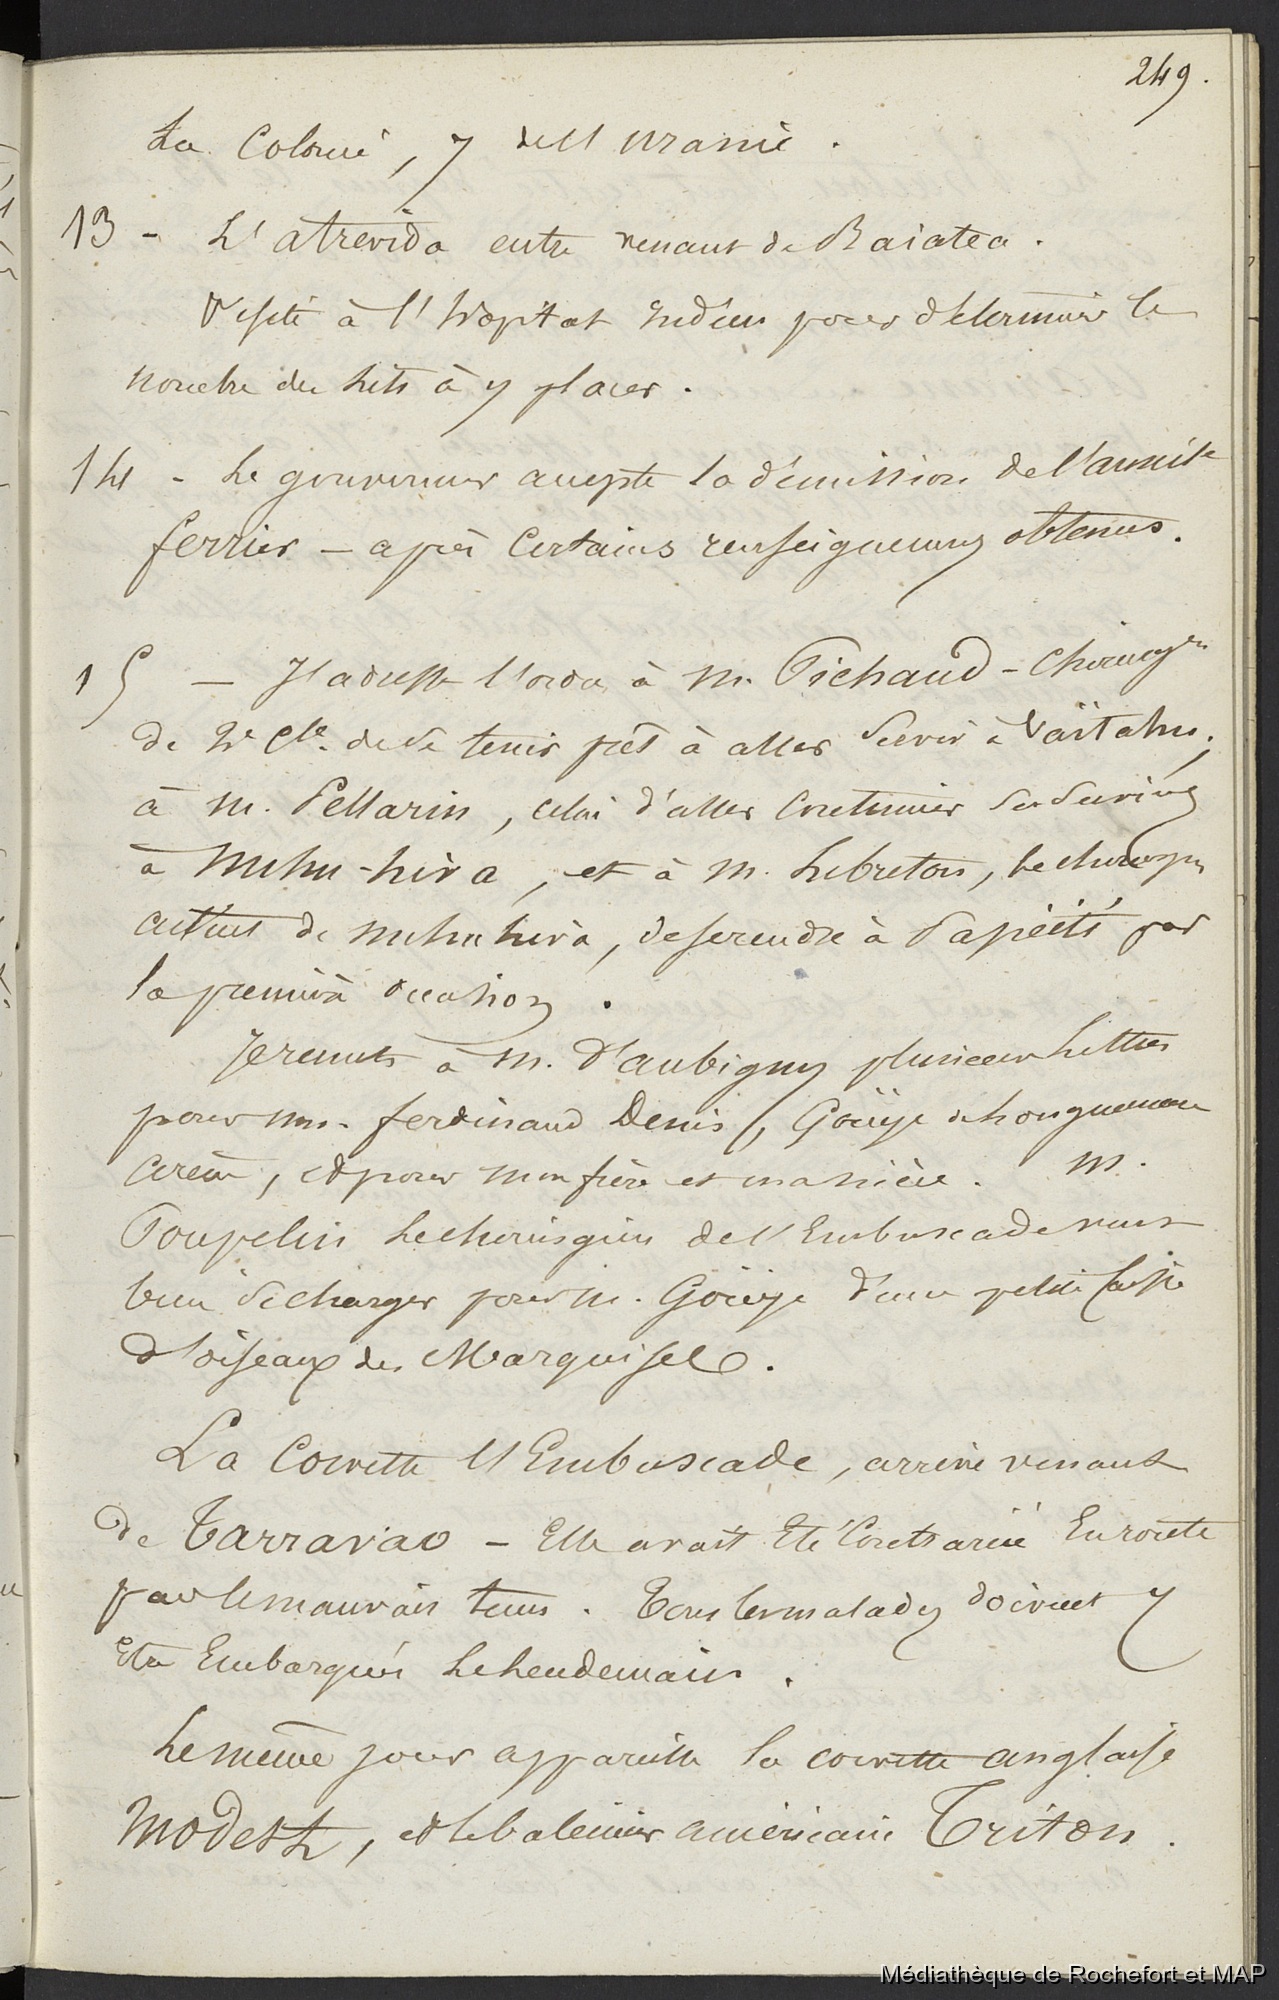 249.
La Colonie, 7 de l'Uranie.
13 - L'atrevida entre venant de Raiatea.
Visite à l'hopital Indien pour déterminer le
nombre des lits à y placer.
14 - Le gouverneur accepte la démission de l'aumôr
ferrier - après certains renseignements obtenus.
15 - J'adresse l'ordre à M. Pichaud - Chirurgn
de 2e Cle. de se tenir prêt à aller servir à Vaïtahu;
à M. Pellarin, celui d'aller continuer ses services
à Nuhu-hiva, et à M. Lebreton, le chirurgn
actuel de nuhu hiva, de se rendre à Papéiti par
la première occasion.
Je remets à M. d'aubigny plusieurs Lettres
pour mrs. ferdinand Denis,
, et pour mon frère et ma nièce. M.
Poupelin Le chirurgien de l'Embuscade veut
bien se charger pour M. d'une petite Caisse
d'oiseaux des Marquises.
La Corvette l'Embuscade, arrive venant
de Tarravao - Elle avait Eté Contrariée En route
par le mauvais tems. Tous les malades doivent y
Etre Embarqués Le Lendemain.
Le même jour appareille la corvette anglaise
Modest, et le baleinier américain Triton.
Médiathèque de Rochefort et MAP